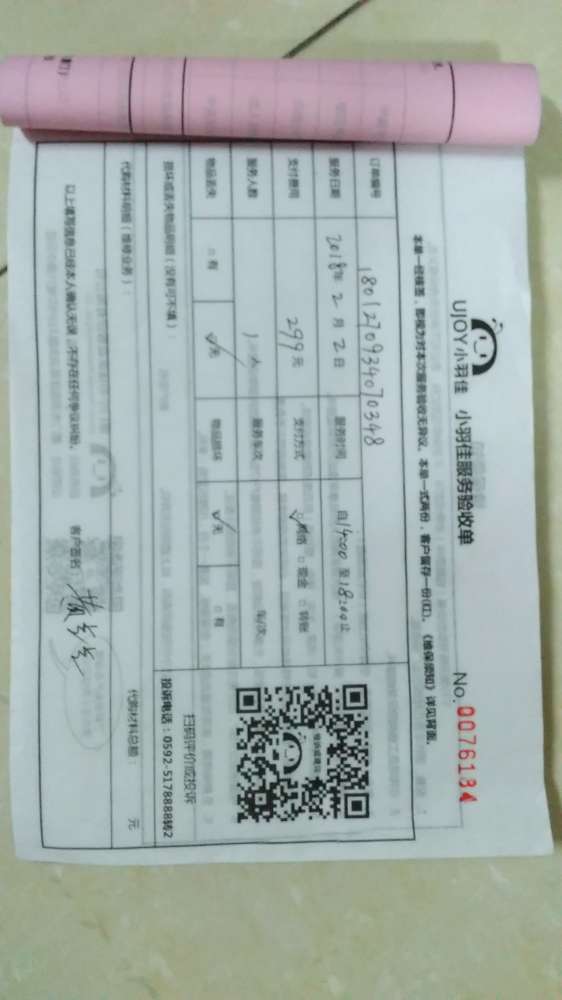 UJOY小羽佳 小羽佳服务验收单 No.0076184
本单一经核签，即视为对本次服务验收无异议。本单一式两份，客户留存一份(红)。《维保须知》详见背面。
订单编号 180127093407034 8
服务日期 2018年2月2日 服务时间 自14:00至18:00止
支付费用 299元 支付方式 ☑网络 □现金 □转账
服务人数 1人 服务车次 车/次
物品丢失 □有 ☑无 物品损坏 ☑无 □有
损坏或丢失物品明细（没有可不填）：
代购材料明细（维修业务）： 代购材料总额： 元
以上填写信息已经本人确认无误，不存在任何争议纠纷。 客户签名
投诉或建议
扫码评价或投诉
投诉电话：0592-5178888转2